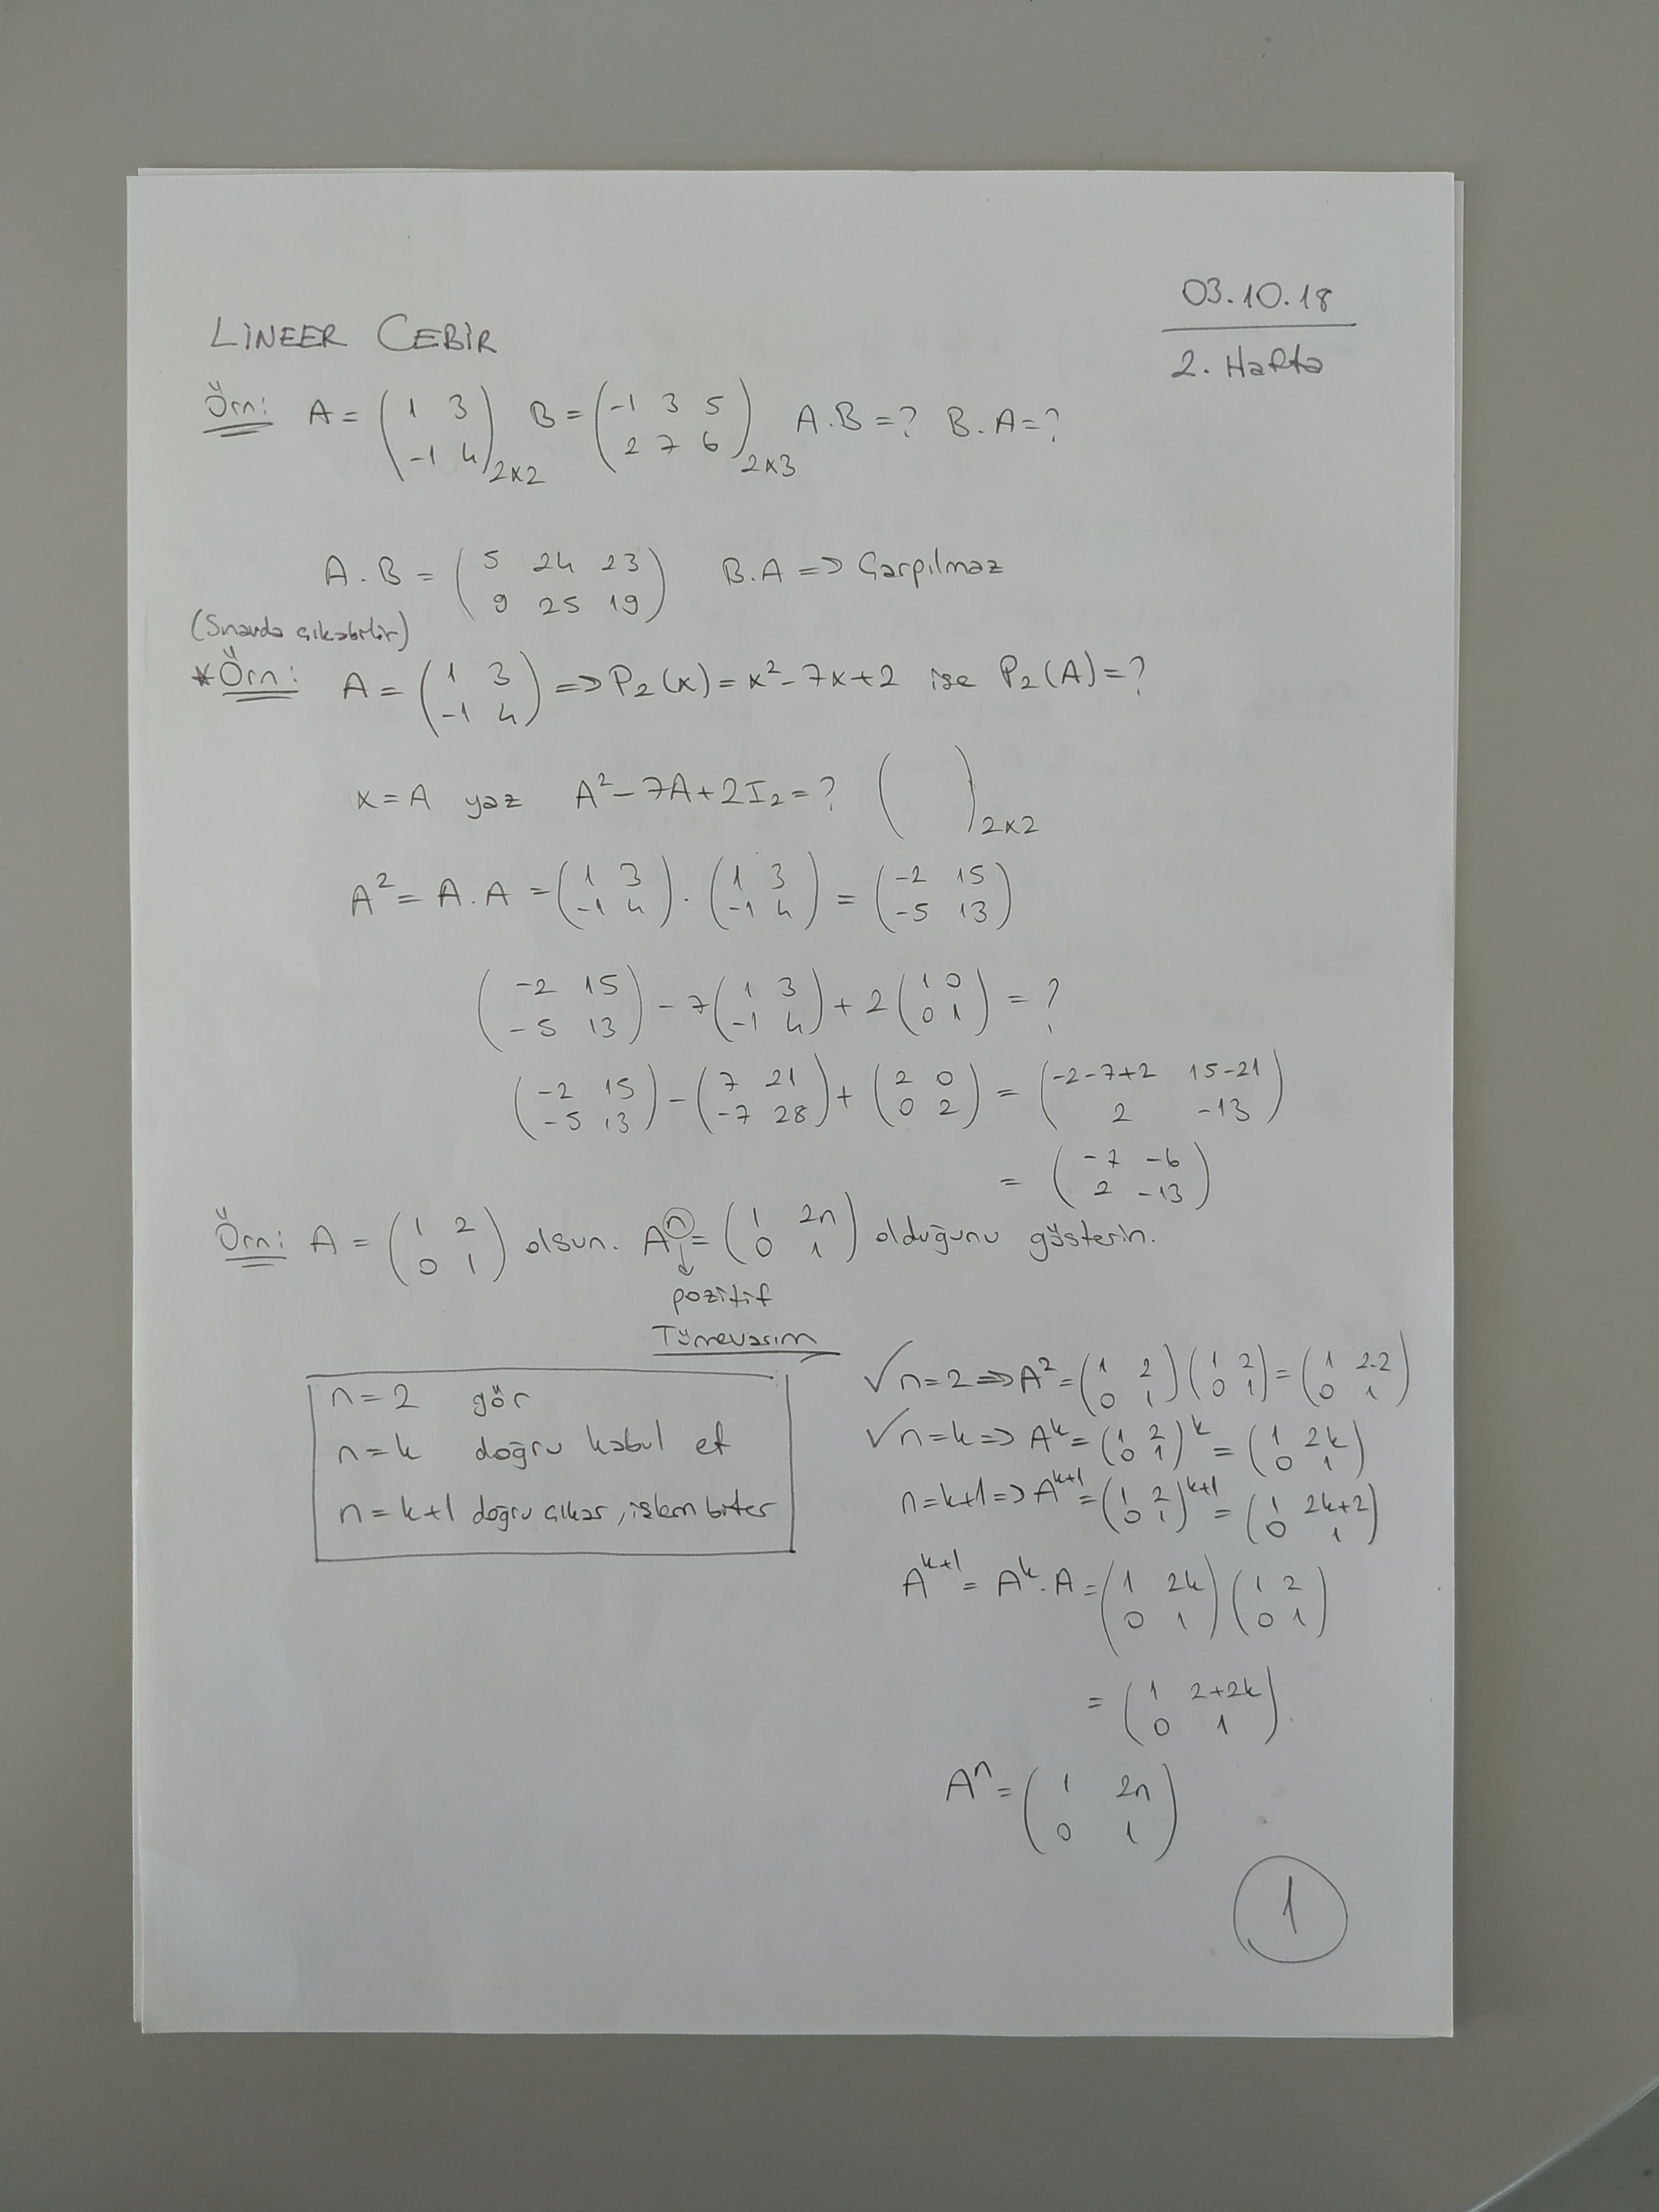 03.10.18
LİNEER CEBİR 2. Hafta
Örn: A = ( 1 3 ; -1 4 )2x2 B = ( -1 3 5 ; 2 7 6 )2x3 A.B=? B.A=?
A.B = ( 5 24 23 ; 9 25 19 ) B.A => Çarpılmaz
(Sınavda çıkabilir)
*Örn: A = ( 1 3 ; -1 4 ) => P2(x) = x² - 7x + 2 ise P2(A) = ?
x = A yaz A² - 7A + 2I2 = ? ( )2x2
A² = A.A = ( 1 3 ; -1 4 ) . ( 1 3 ; -1 4 ) = ( -2 15 ; -5 13 )
( -2 15 ; -5 13 ) - 7 ( 1 3 ; -1 4 ) + 2 ( 1 0 ; 0 1 ) = ?
( -2 15 ; -5 13 ) - ( 7 21 ; -7 28 ) + ( 2 0 ; 0 2 ) = ( -2-7+2 15-21 ; 2 -13 )
= ( -7 -6 ; 2 -13 )
Örn: A = ( 1 2 ; 0 1 ) olsun. Aⁿ = ( 1 2n ; 0 1 ) olduğunu gösterin.
pozitif
Tümevarım
n = 2 gör
n = k doğru kabul et
n = k+1 doğru çıkar, işlem biter
✓ n = 2 => A² = ( 1 2 ; 0 1 ) ( 1 2 ; 0 1 ) = ( 1 2.2 ; 0 1 )
✓ n = k => Aᵏ = ( 1 2 ; 0 1 )ᵏ = ( 1 2k ; 0 1 )
n = k+1 => Aᵏ⁺¹ = ( 1 2 ; 0 1 )ᵏ⁺¹ = ( 1 2k+2 ; 0 1 )
Aᵏ⁺¹ = Aᵏ.A = ( 1 2k ; 0 1 ) ( 1 2 ; 0 1 )
= ( 1 2+2k ; 0 1 )
Aⁿ = ( 1 2n ; 0 1 )
1